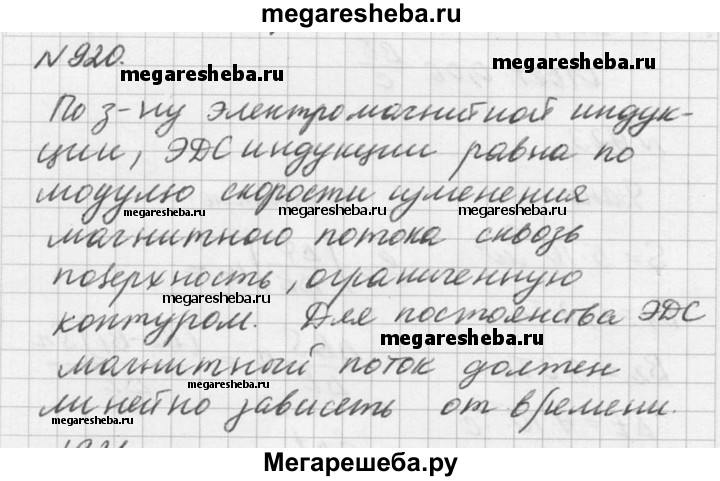 megaresheba.ru
N 920.
megaresheba.ru
megaresheba.ru
По з-ну электромагнитной индук-
ции, ЭДС индукции равна по
модулю скорости изменения
megaresheba.ru megaresheba.ru megaresheba.ru
магнитного потока сквозь
поверхность, ограниченную
megaresheba.ru
контуром. Для постоянства ЭДС
megaresheba.ru
магнитный поток должен
megaresheba.ru
линейно зависеть от времени.
megaresheba.ru
Мегарешеба.ру